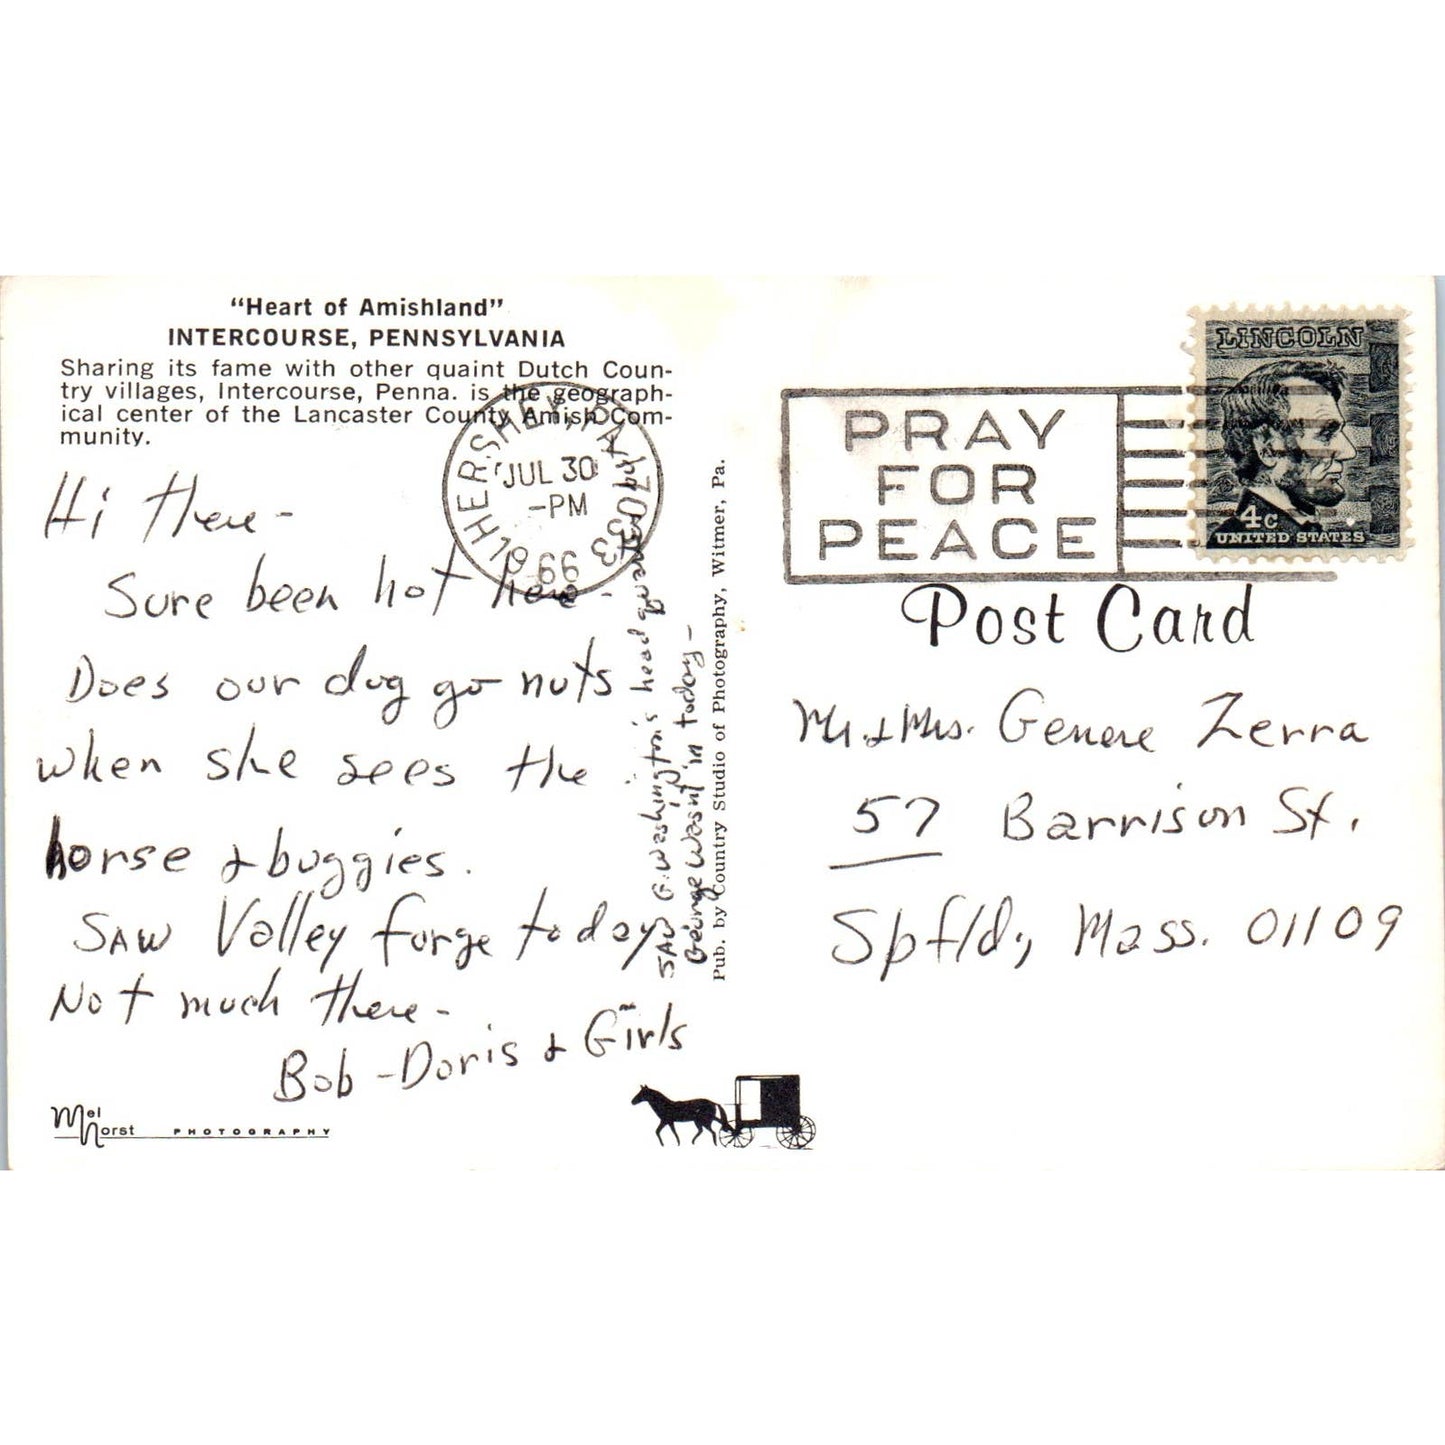 "Heart of Amishland"
INTERCOURSE, PENNSYLVANIA
Sharing its fame with other quaint Dutch Coun-
try villages, Intercourse, Penna. is the geograph-
ical center of the Lancaster County Amish Com-
munity.
Hi there -
Sure been hot here -
Does our dog go nuts
when she sees the
horse & buggies.
SAW Valley forge today
Not much there -
Bob - Doris & Girls
SAW G. Washington's headquarters
George Wasn't in today -
Mel Horst PHOTOGRAPHY
Pub. by Country Studio of Photography, Witmer, Pa.
HERSHEY, PA 17033
JUL 30
-PM
1966
PRAY
FOR
PEACE
LINCOLN
4c
UNITED STATES
Post Card
Mr. & Mrs. Genere Zerra
57 Barrison St.
Spfld, Mass. 01109